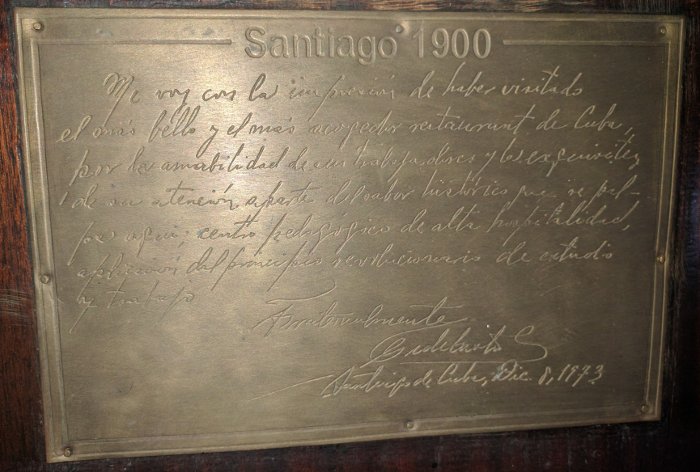 Santiago 1900
Me voy con la impresión de haber visitado
el más bello y el más acogedor restaurant de Cuba,
por la amabilidad de sus trabajadores y lo exquisito
de su atención, aparte del sabor histórico que se pal-
pa aquí; centro pedagógico de alta hospitalidad,
aplicación del principio revolucionario de estudio
y trabajo
Fraternalmente
Santiago de Cuba, Dic. 8, 1973